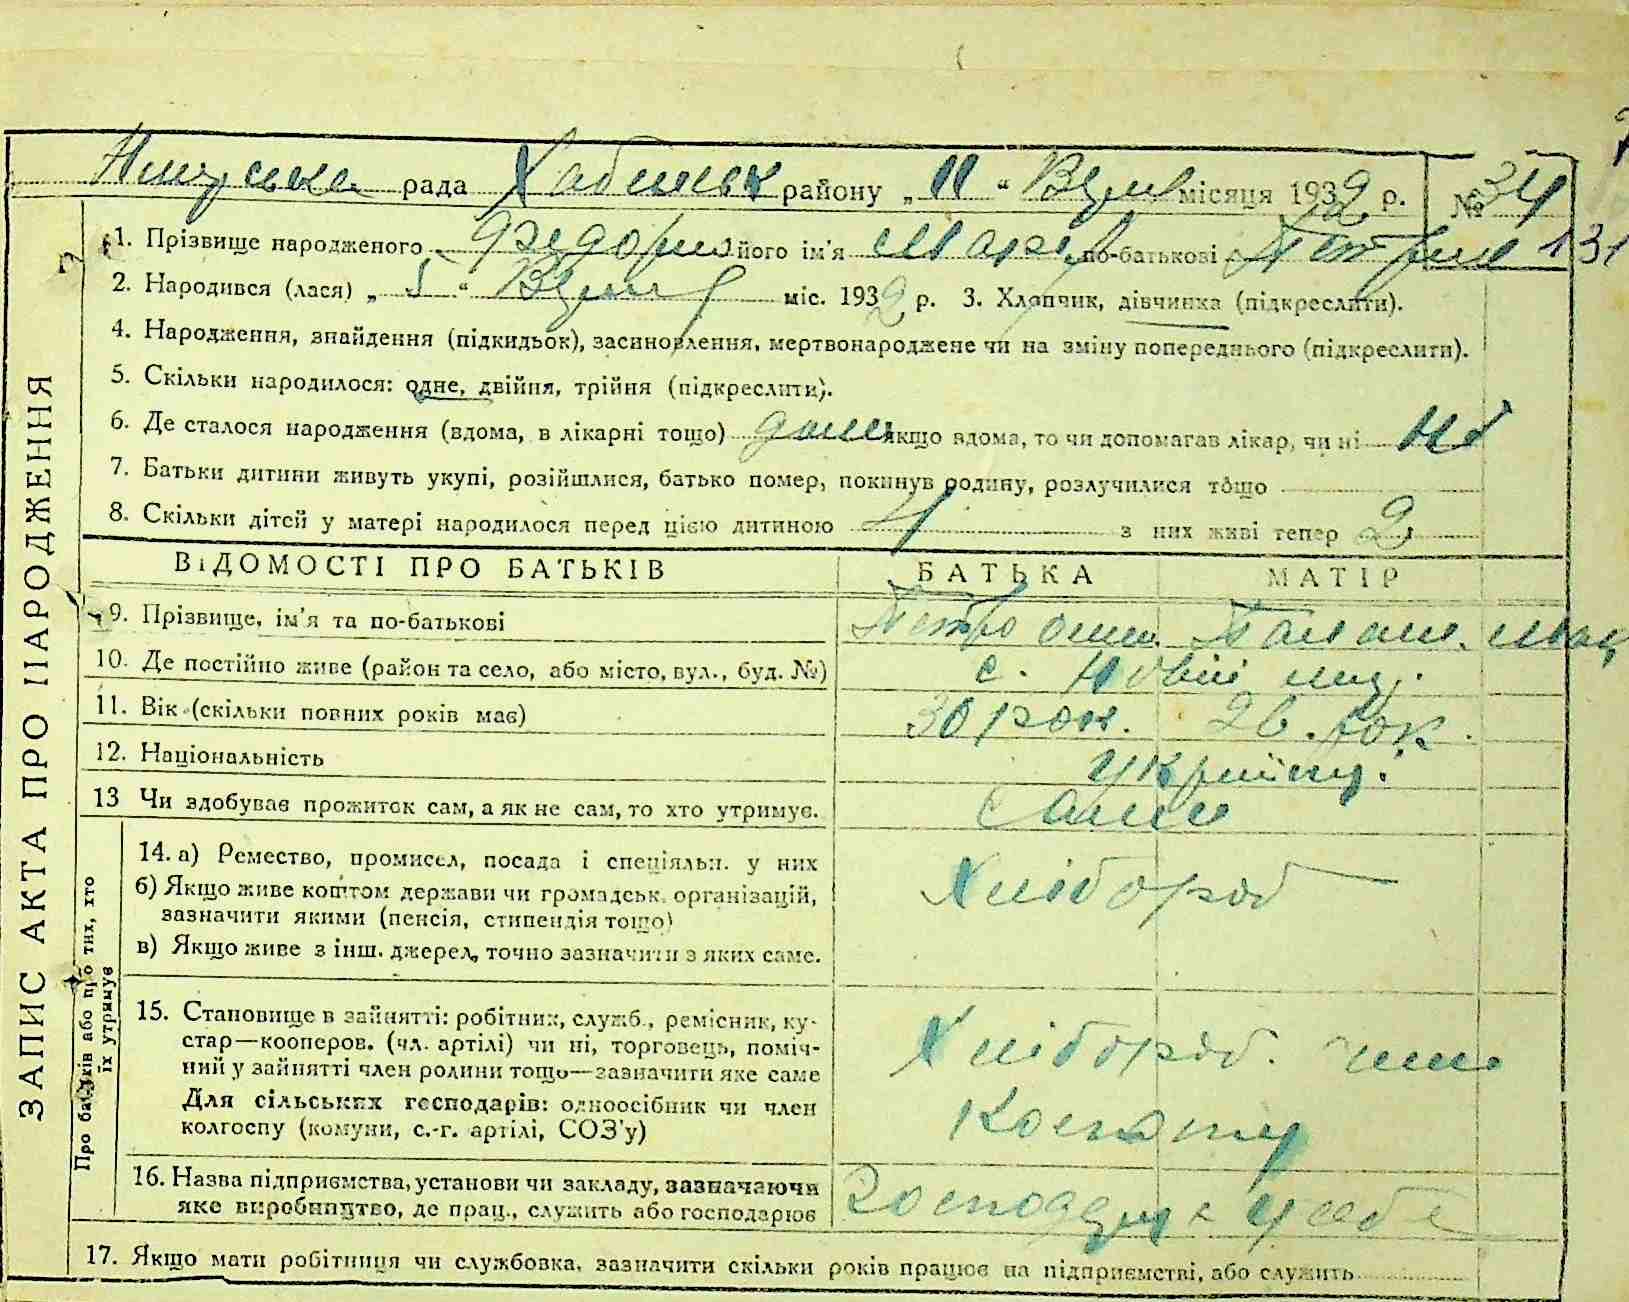 рада Хабенськ району „ 11 “ місяця 1932 р. № 34
1. Прізвище народженого його ім'я по-батькові 131
2. Народився (лася) „ 5 “ міс. 1932 р. 3. Хлопчик, дівчинка (підкреслити).
4. Народження, знайдення (підкидьок), засиновлення, мертвонароджене чи на зміну попереднього (підкреслити).
5. Скільки народилося: одне, двійня, трійня (підкреслити).
6. Де сталося народження (вдома, в лікарні тощо) дома якщо вдома, то чи допомагав лікар, чи ні ні
7. Батьки дитини живуть укупі, розійшлися, батько помер, покинув родину, розлучилися тощо
8. Скільки дітей у матері народилося перед цією дитиною 4 з них живі тепер 2
ВІДОМОСТІ ПРО БАТЬКІВ БАТЬКА МАТІР
9. Прізвище, ім'я та по-батькові Петро
10. Де постійно живе (район та село, або місто, вул., буд. №) с.
11. Вік (скільки повних років має) 30 рок. 26. рок.
12. Національність
13 Чи здобуває прожиток сам, а як не сам, то хто утримує. Сами
14. а) Ремество, промисел, посада і спеціяльн. у них Хлібороб
б) Якщо живе коштом держави чи громадськ. організацій,
зазначити якими (пенсія, стипендія тощо)
в) Якщо живе з інш. джерел, точно зазначити з яких саме.
15. Становище в зайнятті: робітник, служб., ремісник, ку-
стар—кооперов. (чл. артілі) чи ні, торговець, поміч- Хлібороб. член
ний у зайнятті член родини тощо—зазначити яке саме
Для сільських господарів: одноосібник чи член
колгоспу (комуни, с.-г. артілі, СОЗ'у)
16. Назва підприємства, установи чи закладу, зазначаючи
яке виробництво, де прац., служить або господарює у себе
17. Якщо мати робітниця чи службовка, зазначити скільки років працює на підприємстві, або служить
ЗАПИС АКТА ПРО НАРОДЖЕННЯ
Про батьків або про тих, хто
їх утримує